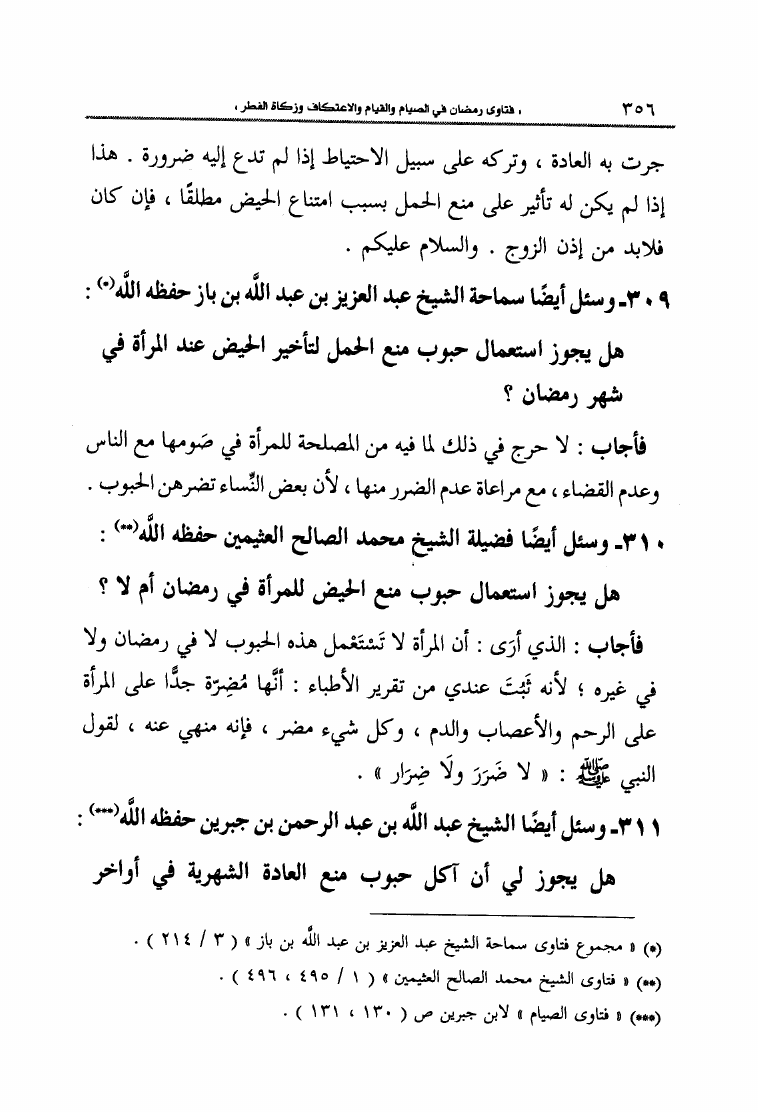 ٣٥٦ « فتاوى رمضان في الصيام والقيام والاعتكاف وزكاة الفطر »
جرت به العادة ، وتركه على سبيل الاحتياط إذا لم تدع إليه ضرورة . هذا
إذا لم يكن له تأثير على منع الحمل بسبب امتناع الحيض مطلقًا ، فإن كان
فلابد من إذن الزوج . والسلام عليكم .
٣٠٩ـ وسئل أيضًا سماحة الشيخ عبد العزيز بن عبد اللَّه بن باز حفظه اللَّه(*) :
هل يجوز استعمال حبوب منع الحمل لتأخير الحيض عند المرأة في
شهر رمضان ؟
فأجاب : لا حرج في ذلك لما فيه من المصلحة للمرأة في صَومها مع الناس
وعدم القضاء ، مع مراعاة عدم الضرر منها ، لأن بعض النِّساء تضرهن الحبوب .
٣١٠ـ وسئل أيضًا فضيلة الشيخ محمد الصالح العثيمين حفظه اللَّه(**) :
هل يجوز استعمال حبوب منع الحيض للمرأة في رمضان أم لا ؟
فأجاب : الذي أرَى : أن المرأة لا تَسْتَعْمل هذه الحبوب لا في رمضان ولا
في غيره ؛ لأنه ثَبُتَ عندي من تقرير الأطباء : أنَّها مُضِرّة جدًّا على المرأة
على الرحم والأعصاب والدم ، وكل شيء مضر ، فإنه منهي عنه ، لقول
النبي ﷺ : « لا ضَرَرَ ولَا ضِرَار » .
٣١١ـ وسئل أيضًا الشيخ عبد اللَّه بن عبد الرحمن بن جبرين حفظه اللَّه(***) :
هل يجوز لي أن آكل حبوب منع العادة الشهرية في أواخر
(*) « مجموع فتاوى سماحة الشيخ عبد العزيز بن عبد اللَّه بن باز » ( ٣ / ٢١٤ ) .
(**) « فتاوى الشيخ محمد الصالح العثيمين » ( ١ / ٤٩٥ ، ٤٩٦ ) .
(***) « فتاوى الصيام » لابن جبرين ص ( ١٣٠ ، ١٣١ ) .